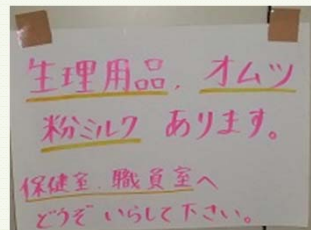 生理用品、オムツ
粉ミルク あります。
保健室、職員室へ
どうぞ いらして下さい。